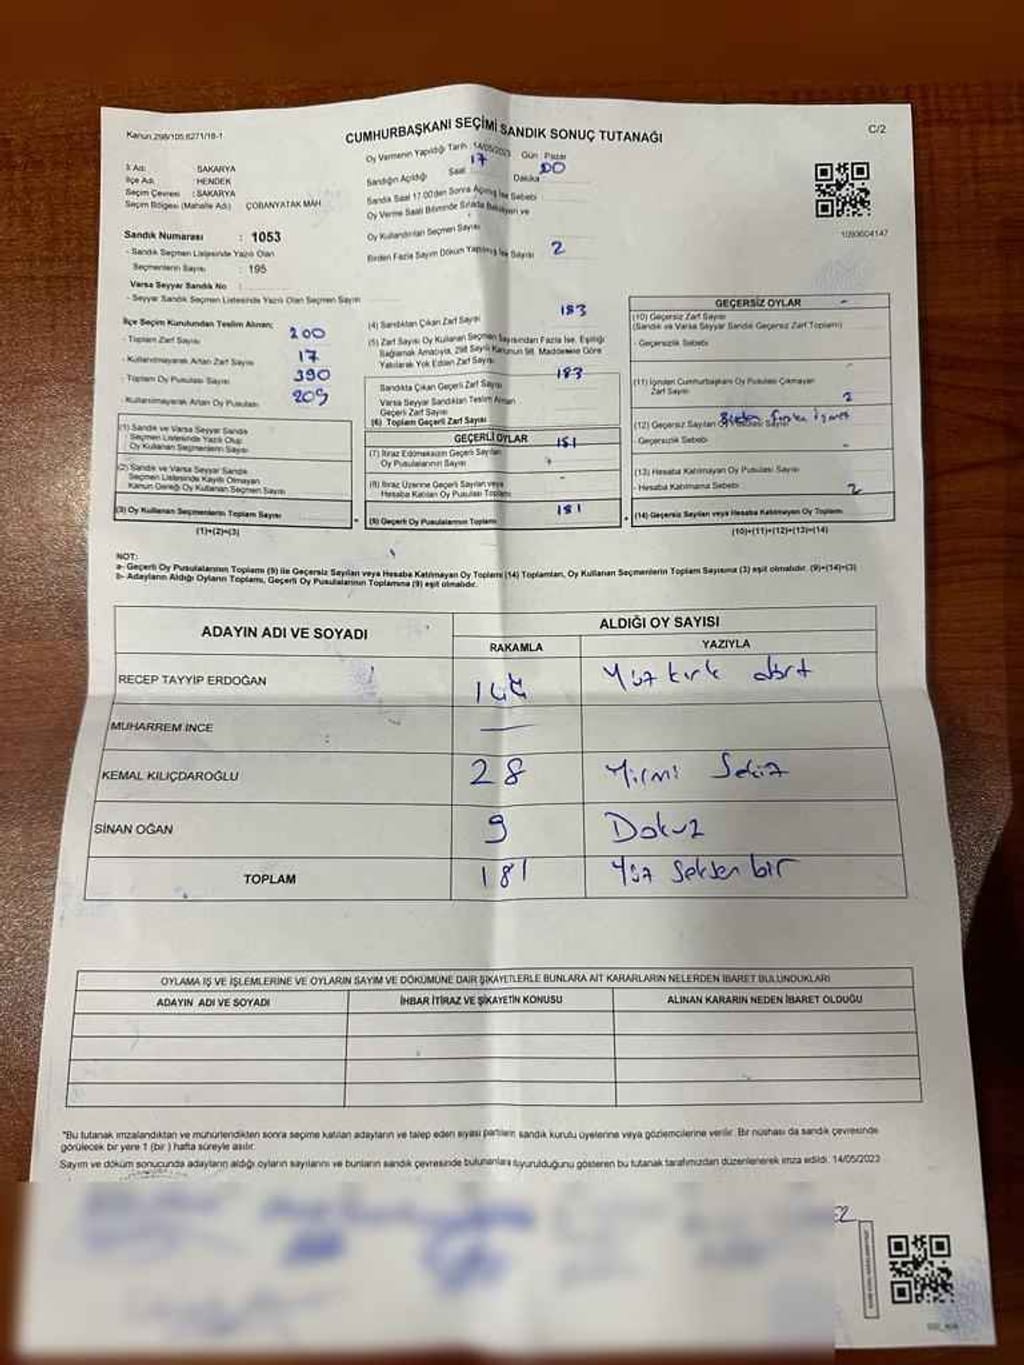 Kanun.298/105,6271/18-1
CUMHURBAŞKANI SEÇİMİ SANDIK SONUÇ TUTANAĞI
C/2
İl Adı : SAKARYA
İlçe Adı : HENDEK
Seçim Çevresi : SAKARYA
Seçim Bölgesi (Mahalle Adı) ÇOBANYATAK MAH
Sandık Numarası : 1053
- Sandık Seçmen Listesinde Yazılı Olan
Seçmenlerin Sayısı : 195
Varsa Seyyar Sandık No :
- Seyyar Sandık Seçmen Listesinde Yazılı Olan Seçmen Sayısı
Oy Vermenin Yapıldığı Tarih :14/05/2023 Gün : Pazar
Sandığın Açıldığı Saat 17 Dakika 00
Sandık Saat 17.00'den Sonra Açılmış İse Sebebi
Oy Verme Saati Bitiminde Sırada Bekleyen ve
Oy Kullandırılan Seçmen Sayısı
Birden Fazla Sayım Döküm Yapılmış İse Sayısı 2
1093604147
İlçe Seçim Kurulundan Teslim Alınan;
- Toplam Zarf Sayısı 200
- Kullanılmayarak Artan Zarf Sayısı 17
- Toplam Oy Pusulası Sayısı 390
- Kullanılmayarak Artan Oy Pusulası 209
(1) Sandık ve Varsa Seyyar Sandık
Seçmen Listesinde Yazılı Olup
Oy Kullanan Seçmen Sayısı
(2) Sandık ve Varsa Seyyar Sandık
Seçmen Listesinde Kayıtlı Olmayan
Kanun Gereği Oy Kullanan Seçmen Sayısı
(3) Oy Kullanan Seçmenlerin Toplam Sayısı
(1)+(2)=(3)
(4) Sandıktan Çıkan Zarf Sayısı 183
(5) Zarf Sayısı Oy Kullanan Seçmen Sayısından Fazla İse, Eşitliği
Sağlamak Amacıyla, 298 Sayılı Kanunun 98. Maddesine Göre
Yakılarak Yok Edilen Zarf Sayısı
Sandıkta Çıkan Geçerli Zarf Sayısı 183
Varsa Seyyar Sandıktan Teslim Alınan
Geçerli Zarf Sayısı
(6) Toplam Geçerli Zarf Sayısı
GEÇERLİ OYLAR
(7) İtiraz Edilmeksizin Geçerli Sayılan 181
Oy Pusulalarının Sayısı
(8) İtiraz Üzerine Geçerli Sayılan veya -
Hesaba Katılan Oy Pusulası Toplamı
(9) Geçerli Oy Pusulalarının Toplamı 181
GEÇERSİZ OYLAR -
(10) Geçersiz Zarf Sayısı
(Sandık ve Varsa Seyyar Sandık Geçersiz Zarf Toplamı)
- Geçersizlik Sebebi
(11) İçinden Cumhurbaşkanı Oy Pusulası Çıkmayan -
Zarf Sayısı
2
(12) Geçersiz Sayılan Oy Pusulası Sayısı
- Geçersizlik Sebebi Birden fazla işaret
(13) Hesaba Katılmayan Oy Pusulası Sayısı -
- Hesaba Katılmama Sebebi
(14) Geçersiz Sayılan veya Hesaba Katılmayan Oy Toplamı 2
(10)+(11)+(12)+(13)=(14)
NOT:
a- Geçerli Oy Pusulalarının Toplamı (9) ile Geçersiz Sayılan veya Hesaba Katılmayan Oy Toplamı (14) Toplamları, Oy Kullanan Seçmenlerin Toplam Sayısına (3) eşit olmalıdır. (9)+(14)=(3)
b- Adayların Aldığı Oyların Toplamı, Geçerli Oy Pusulalarının Toplamına (9) eşit olmalıdır.
ADAYIN ADI VE SOYADI
ALDIĞI OY SAYISI
RAKAMLA YAZIYLA
RECEP TAYYİP ERDOĞAN 144 Yüz kırk dört
MUHARREM İNCE —
KEMAL KILIÇDAROĞLU 28 Yirmi Sekiz
SİNAN OĞAN 9 Dokuz
TOPLAM 181 Yüz Seksen bir
OYLAMA İŞ VE İŞLEMLERİNE VE OYLARIN SAYIM VE DÖKÜMÜNE DAİR ŞİKAYETLERLE BUNLARA AİT KARARLARIN NELERDEN İBARET BULUNDUKLARI
ADAYIN ADI VE SOYADI İHBAR İTİRAZ VE ŞİKAYETİN KONUSU ALINAN KARARIN NEDEN İBARET OLDUĞU
*Bu tutanak imzalandıktan ve mühürlendikten sonra seçime katılan adayların ve talep eden siyasi partilerin sandık kurulu üyelerine veya gözlemcilerine verilir. Bir nüshası da sandık çevresinde
görülecek bir yere 1 (bir ) hafta süreyle asılır.
Sayım ve döküm sonucunda adayların aldığı oyların sayılarını ve bunların sandık çevresinde bulunanlara duyurulduğunu gösteren bu tutanak tarafımızdan düzenlenerek imza edildi. 14/05/2023